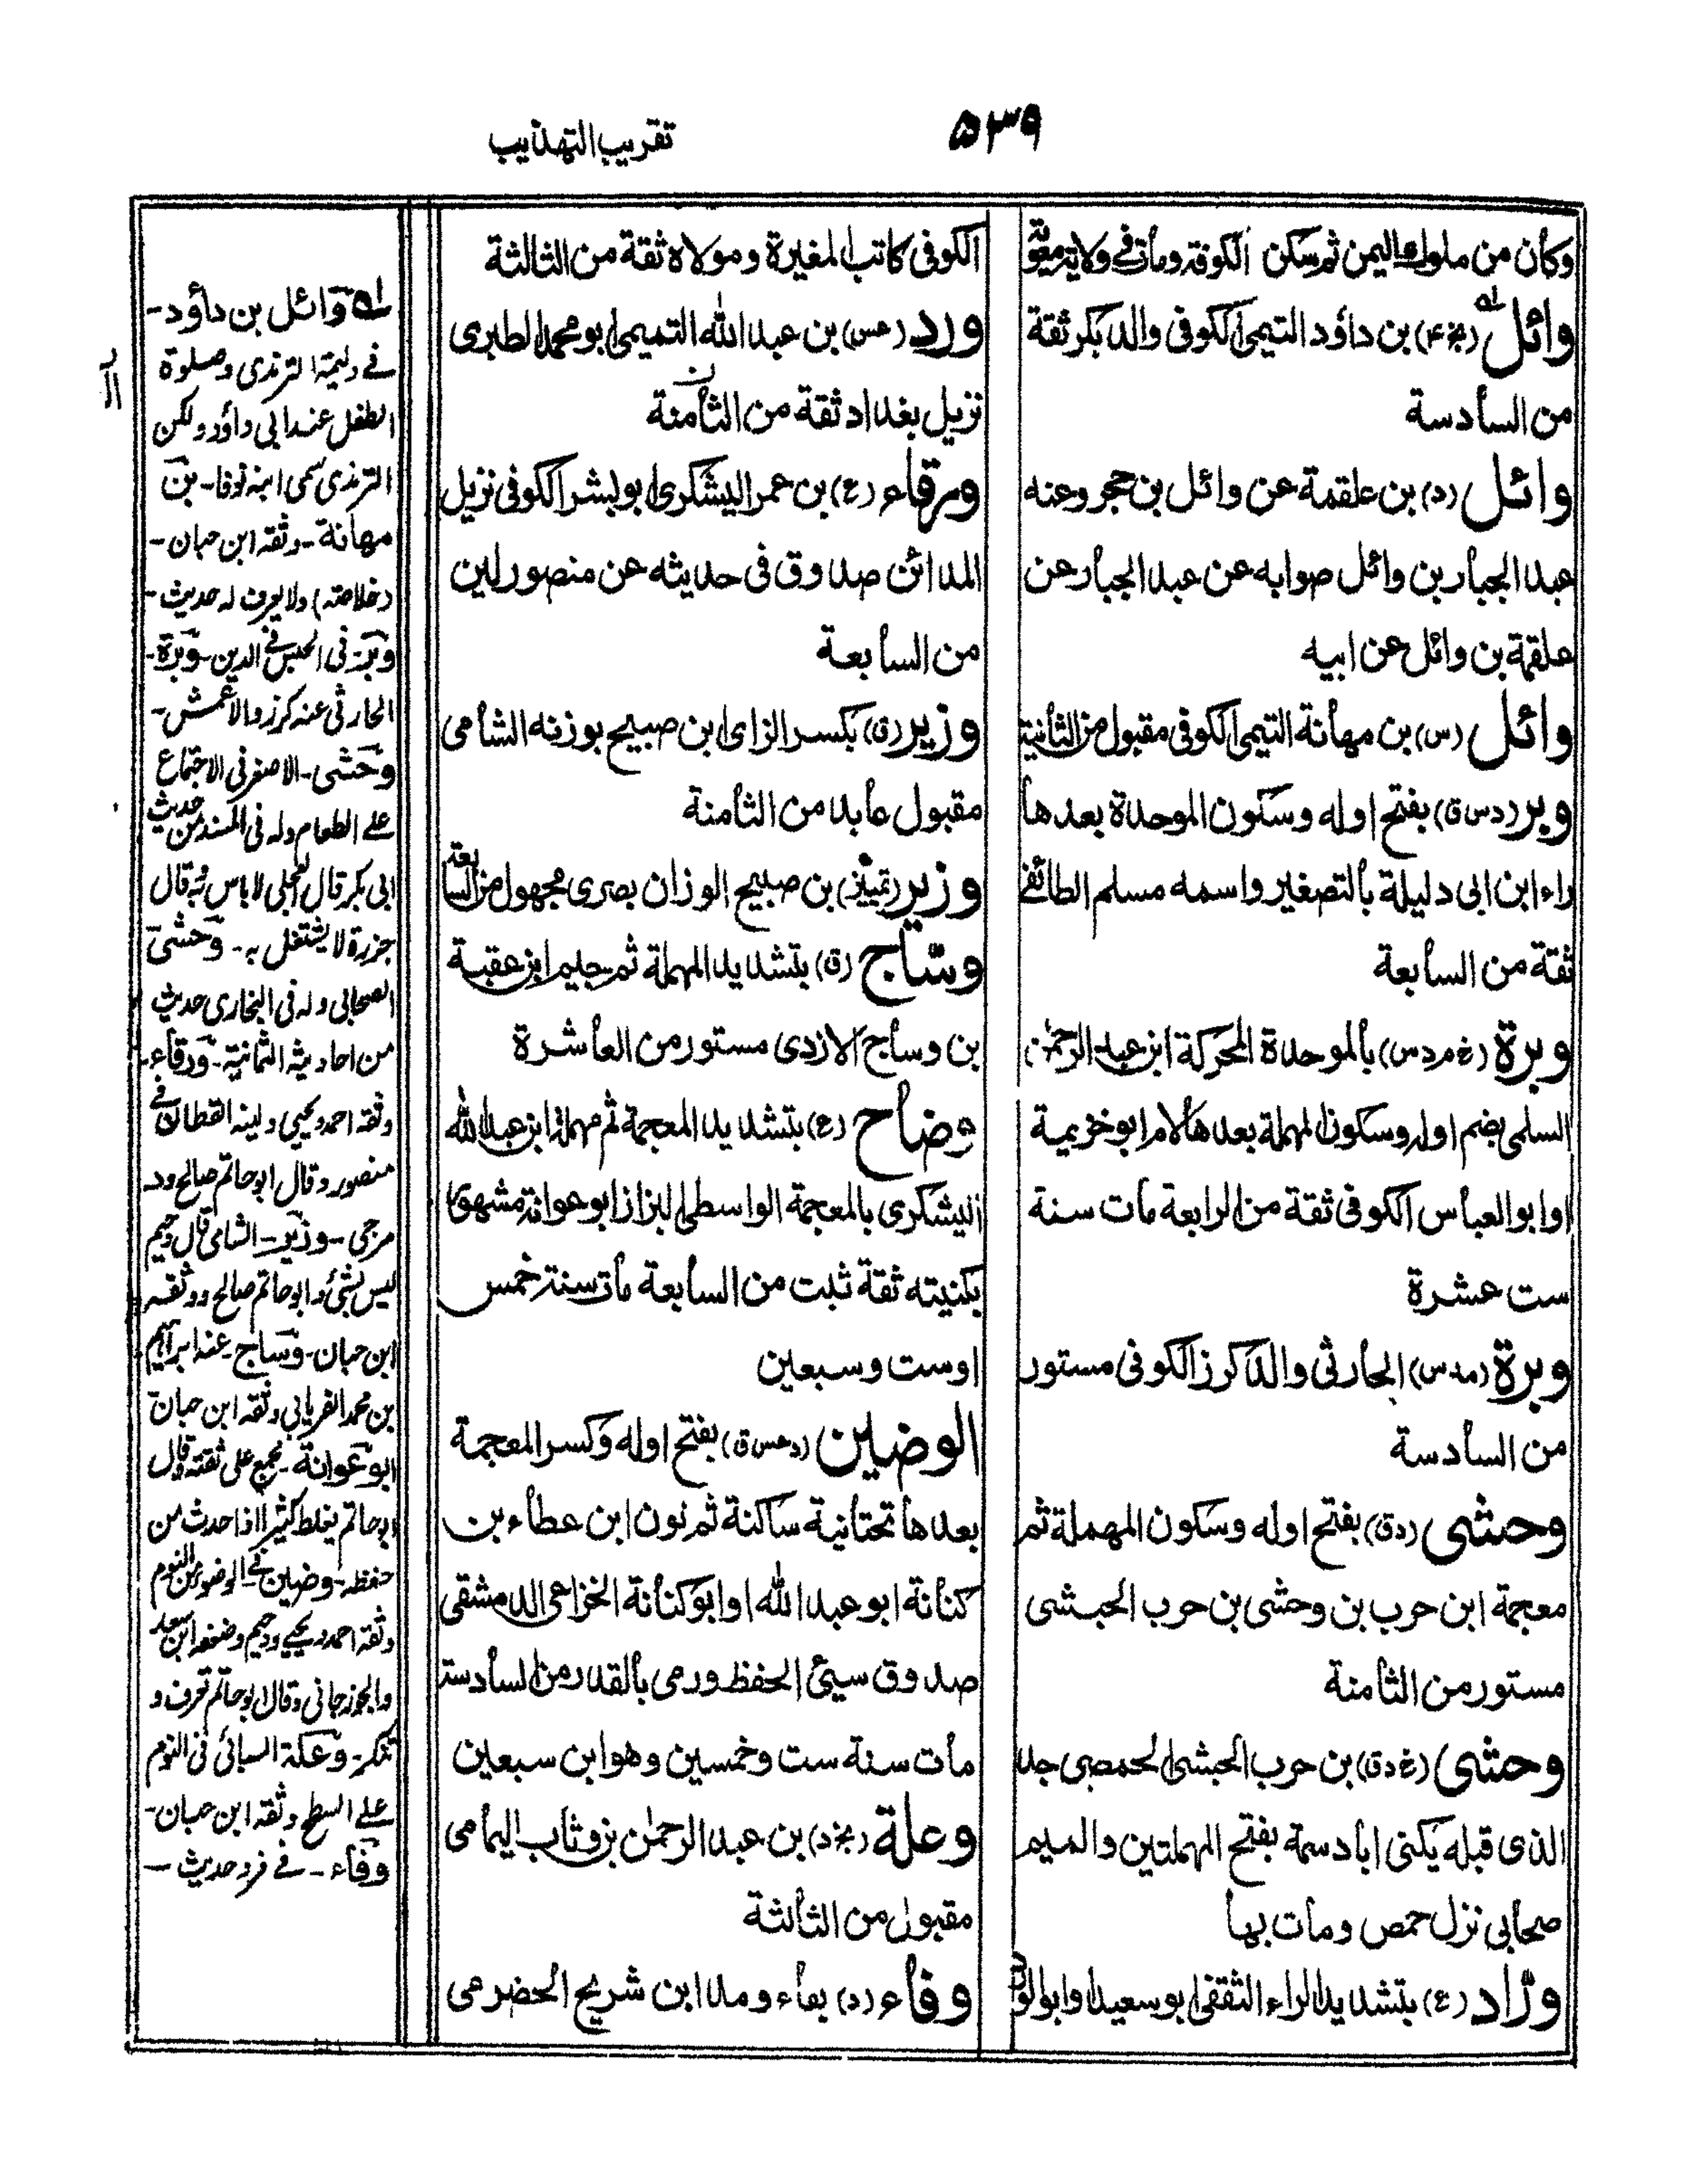 ۵۳۹
تقريب التهذيب
وكان من ملوك اليمن ثم سكن الكوفة ومات في ولاية معوية
وائل (بخ ۴) بن داؤد التيمي الكوفي والد بكر ثقة
من السادسة
وائل (د) بن علقمة عن وائل بن حجر وعنه
عبد الجبار بن وائل صوابه عن عبد الجبار عن
علقمة بن وائل عن ابيه
وائل (س) بن مهانة التيمي الكوفي مقبول من الثانية
وبر (د س ق) بفتح اوله وسكون الموحدة بعدها
راء ابن ابي دليلة بالتصغير واسمه مسلم الطائفي
ثقة من السابعة
وبرة (خ م د س) بالموحدة المحركة ابن عبد الرحمن
السلمي بضم اوله وسكون المهملة بعدها لام ابو خزيمة
او ابو العباس الكوفي ثقة من الرابعة مات سنة
ست عشرة
وبرة (مد س) الحارثي والد كرز الكوفي مستور
من السادسة
وحشي (د ق) بفتح اوله وسكون المهملة ثم
معجمة ابن حرب بن وحشي بن حرب الحبشي
مستور من الثامنة
وحشي (خ د ق) بن حرب الحبشي الحمصي جد
الذي قبله يكنى ابا دسمة بفتح المهملتين والميم
صحابي نزل حمص ومات بها
ورّاد (ع) بتشديد الراء الثقفي ابو سعيد او ابو الورد
الكوفي كاتب المغيرة ومولاه ثقة من الثالثة
ورد (عس) بن عبد الله التميمي ابو محمد الطبري
نزيل بغداد ثقة من الثامنة
ورقاء (ع) بن عمر اليشكري ابو بشر الكوفي نزيل
المدائن صدوق في حديثه عن منصور لين
من السابعة
وزير (ق) بكسر الزاي ابن صبيح بوزنه الشامي
مقبول عابد من الثامنة
وزير (تمييز) بن صبيح الوزان بصري مجهول من السابعة
وسّاج (ق) بتشديد المهملة ثم جيم ابن عقبة
بن وساج الازدي مستور من العاشرة
وضاح (ع) بتشديد المعجمة ثم مهملة ابن عبد الله
اليشكري بالمعجمة الواسطي البزاز ابو عوانة مشهور
بكنيته ثقة ثبت من السابعة مات سنة خمس
او ست وسبعين
الوضين (د عس ق) بفتح اوله وكسر المعجمة
بعدها تحتانية ساكنة ثم نون ابن عطاء بن
كنانة ابو عبد الله او ابو كنانة الخزاعي الدمشقي
صدوق سيئ الحفظ ورمي بالقدر من السادسة
مات سنة ست وخمسين وهو ابن سبعين
وعلة (بخ د) بن عبد الرحمن بن وثاب اليمامي
مقبول من الثالثة
وفاء (د) بفاء ومد ابن شريح الحضرمي
له وائل بن داؤد -
في وليمة الترمذي وصلوة
الطفل عند ابي داؤد ولكن
الترمذي سمى ابنه نوفا - بن
مهانة - وثقه ابن حبان -
(خلاصته) ولا يعرف له حديث -
وبر - في الحبس في الدين - وبرة -
الحارثي عنه كرز والاعمش -
وحشي - الاصغر في الاجتماع
على الطعام وله في المسند من حديث
ابي بكر قال العجلي لا باس به وقال
جزرة لا يشتغل به - وحشي
الصحابي وله في البخاري حديث
من احاديثه الثمانية - ورقاء -
وثقه احمد ويحيي ولينه القطان في
منصور وقال ابو حاتم صالح ود -
مرجى - وزير - الشامي قال دحيم
ليس بشئ وابو حاتم صالح ووثقه
ابن حبان - وساج - عنه ابراهيم
بن محمد الفريابي وثقه ابن حبان
ابو عوانة - مجمع على ثقته وقال
ابو حاتم يغلط كثيرا اذا حدث من
حفظه - وضين - في الوضوء من النوم
وثقه احمد ويحيي ودحيم وضعفه ابن سعد
والجوزجاني وقال ابو حاتم تعرف و
تنكر - وعلة السبائي في النوم
على السطح وثقه ابن حبان -
وفاء - في فرد حديث -